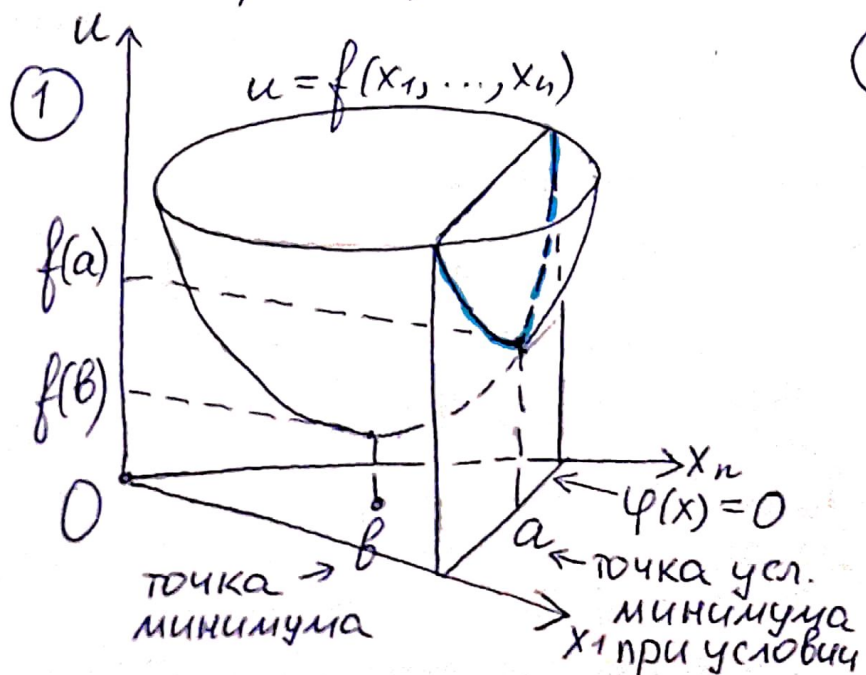 u
①
u = f(x₁, ..., xₙ)
f(a)
f(в)
O
xₙ
φ(x) = 0
в
a
точка
минимума
точка усл.
минимума
x₁
при условии